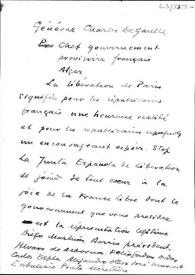 Général Charles deGaulle
Chef gouvernement
provisoire français
Alger
La libération de Paris
signifie pour les républicains
français une heureuse réalité
et pour les républicains espagnols
un encourageant espoir. Stop
La Junta Española de Liberación
se joint de tout coeur à la
joie de la France libre dont le
gouvernement que vous présidez
est la représentation légitime
Diego Martinez Barrio président
Alvaro de Albornoz
Carlos Esplá
Indalecio Prieto Secrétaire